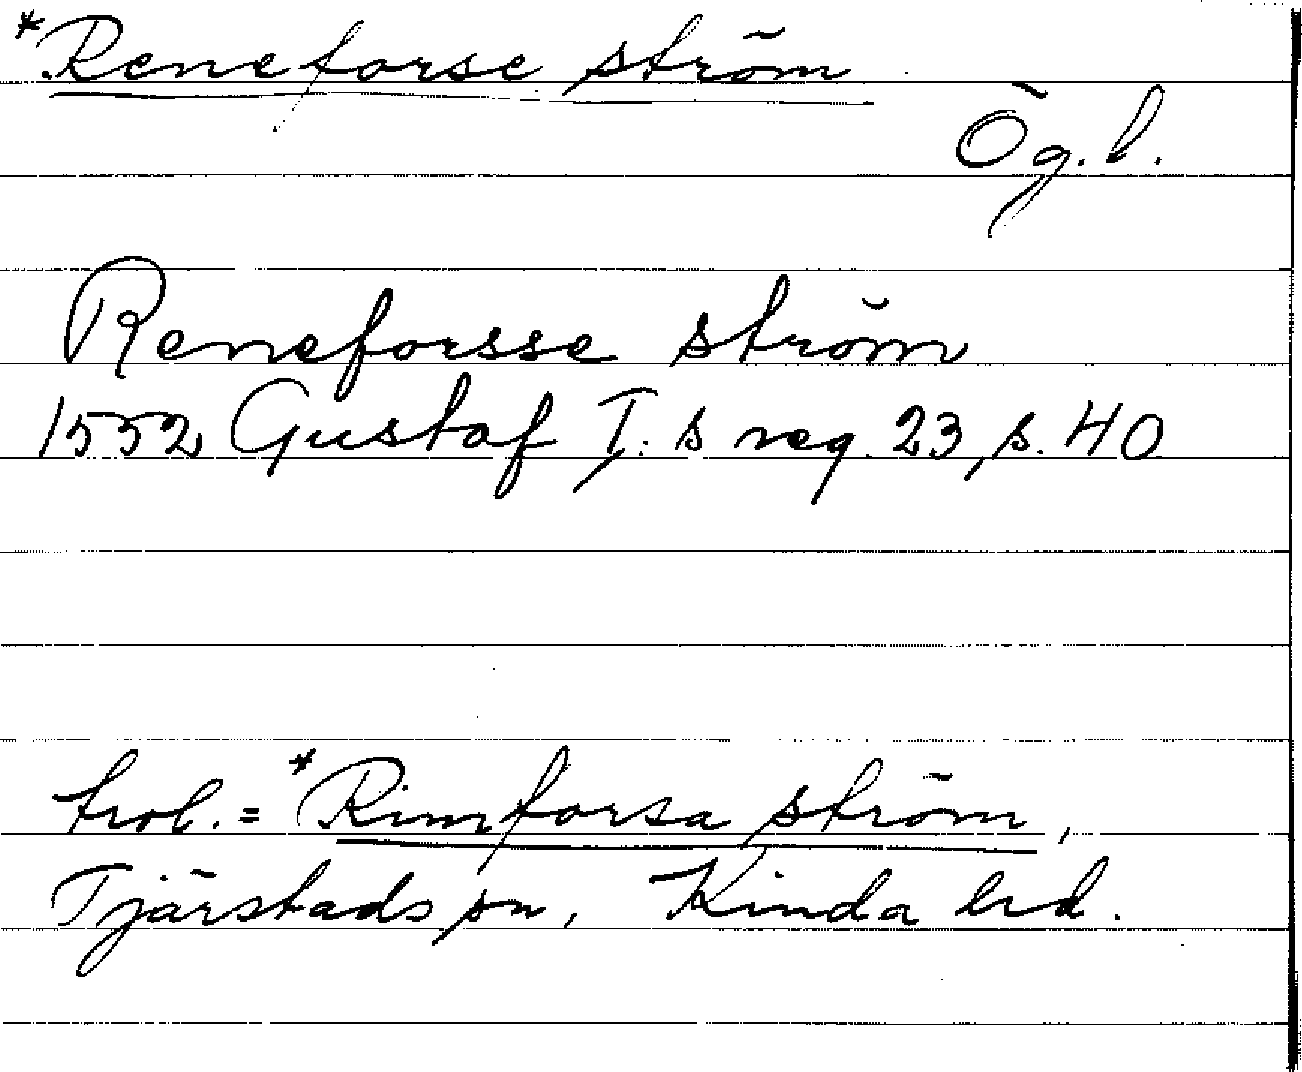 *Reneforse ström
Ög. l.
Reneforsse ström
1552 Gustaf I:s reg. 23, s. 40
trol. = *Rimforsa ström,
Tjärstads sn, Kinda hd.